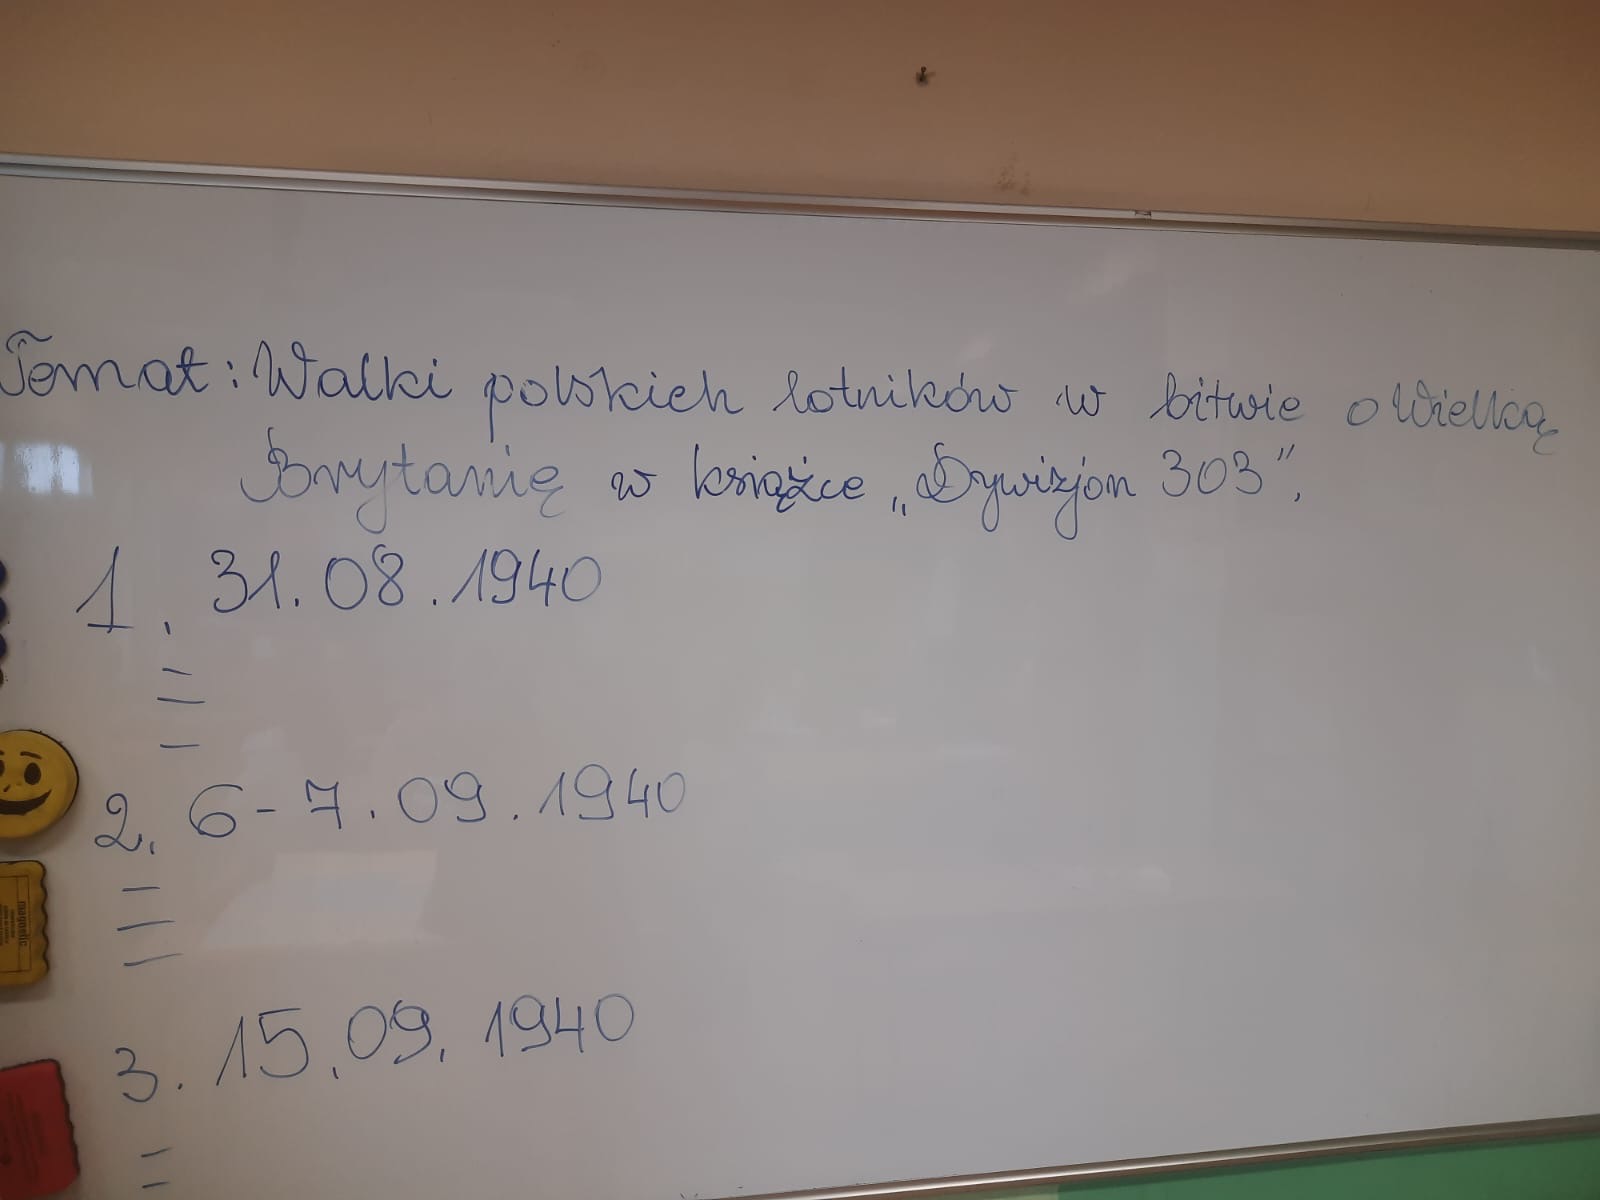 Temat: Walki polskich lotników w bitwie o Wielką
Brytanię w książce „Dywizjon 303”.
1. 31.08.1940
–
–
–
2. 6-7.09.1940
–
–
–
3. 15.09.1940
–
–
magnetic